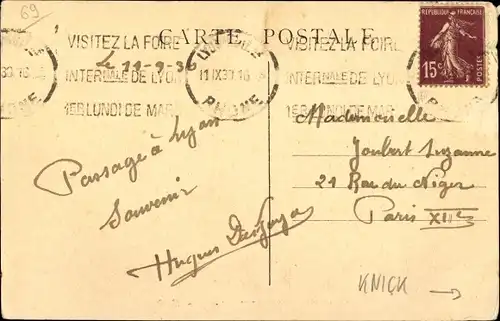 69
CARTE POSTALE
VISITEZ LA FOIRE
INTERNALE DE LYON
1ER LUNDI DE MAR
Le 11-9-36
RHONE
VISITEZ LA FOIRE
INTERNALE DE LYON
1ER LUNDI DE MAR
REPUBLIQUE FRANÇAISE
15c
POSTES
Mademoiselle
Joubert Suzanne
21 Rue du Niger
Paris XIIe
Passage à Lyon
Souvenir
Hugues
KNICK →